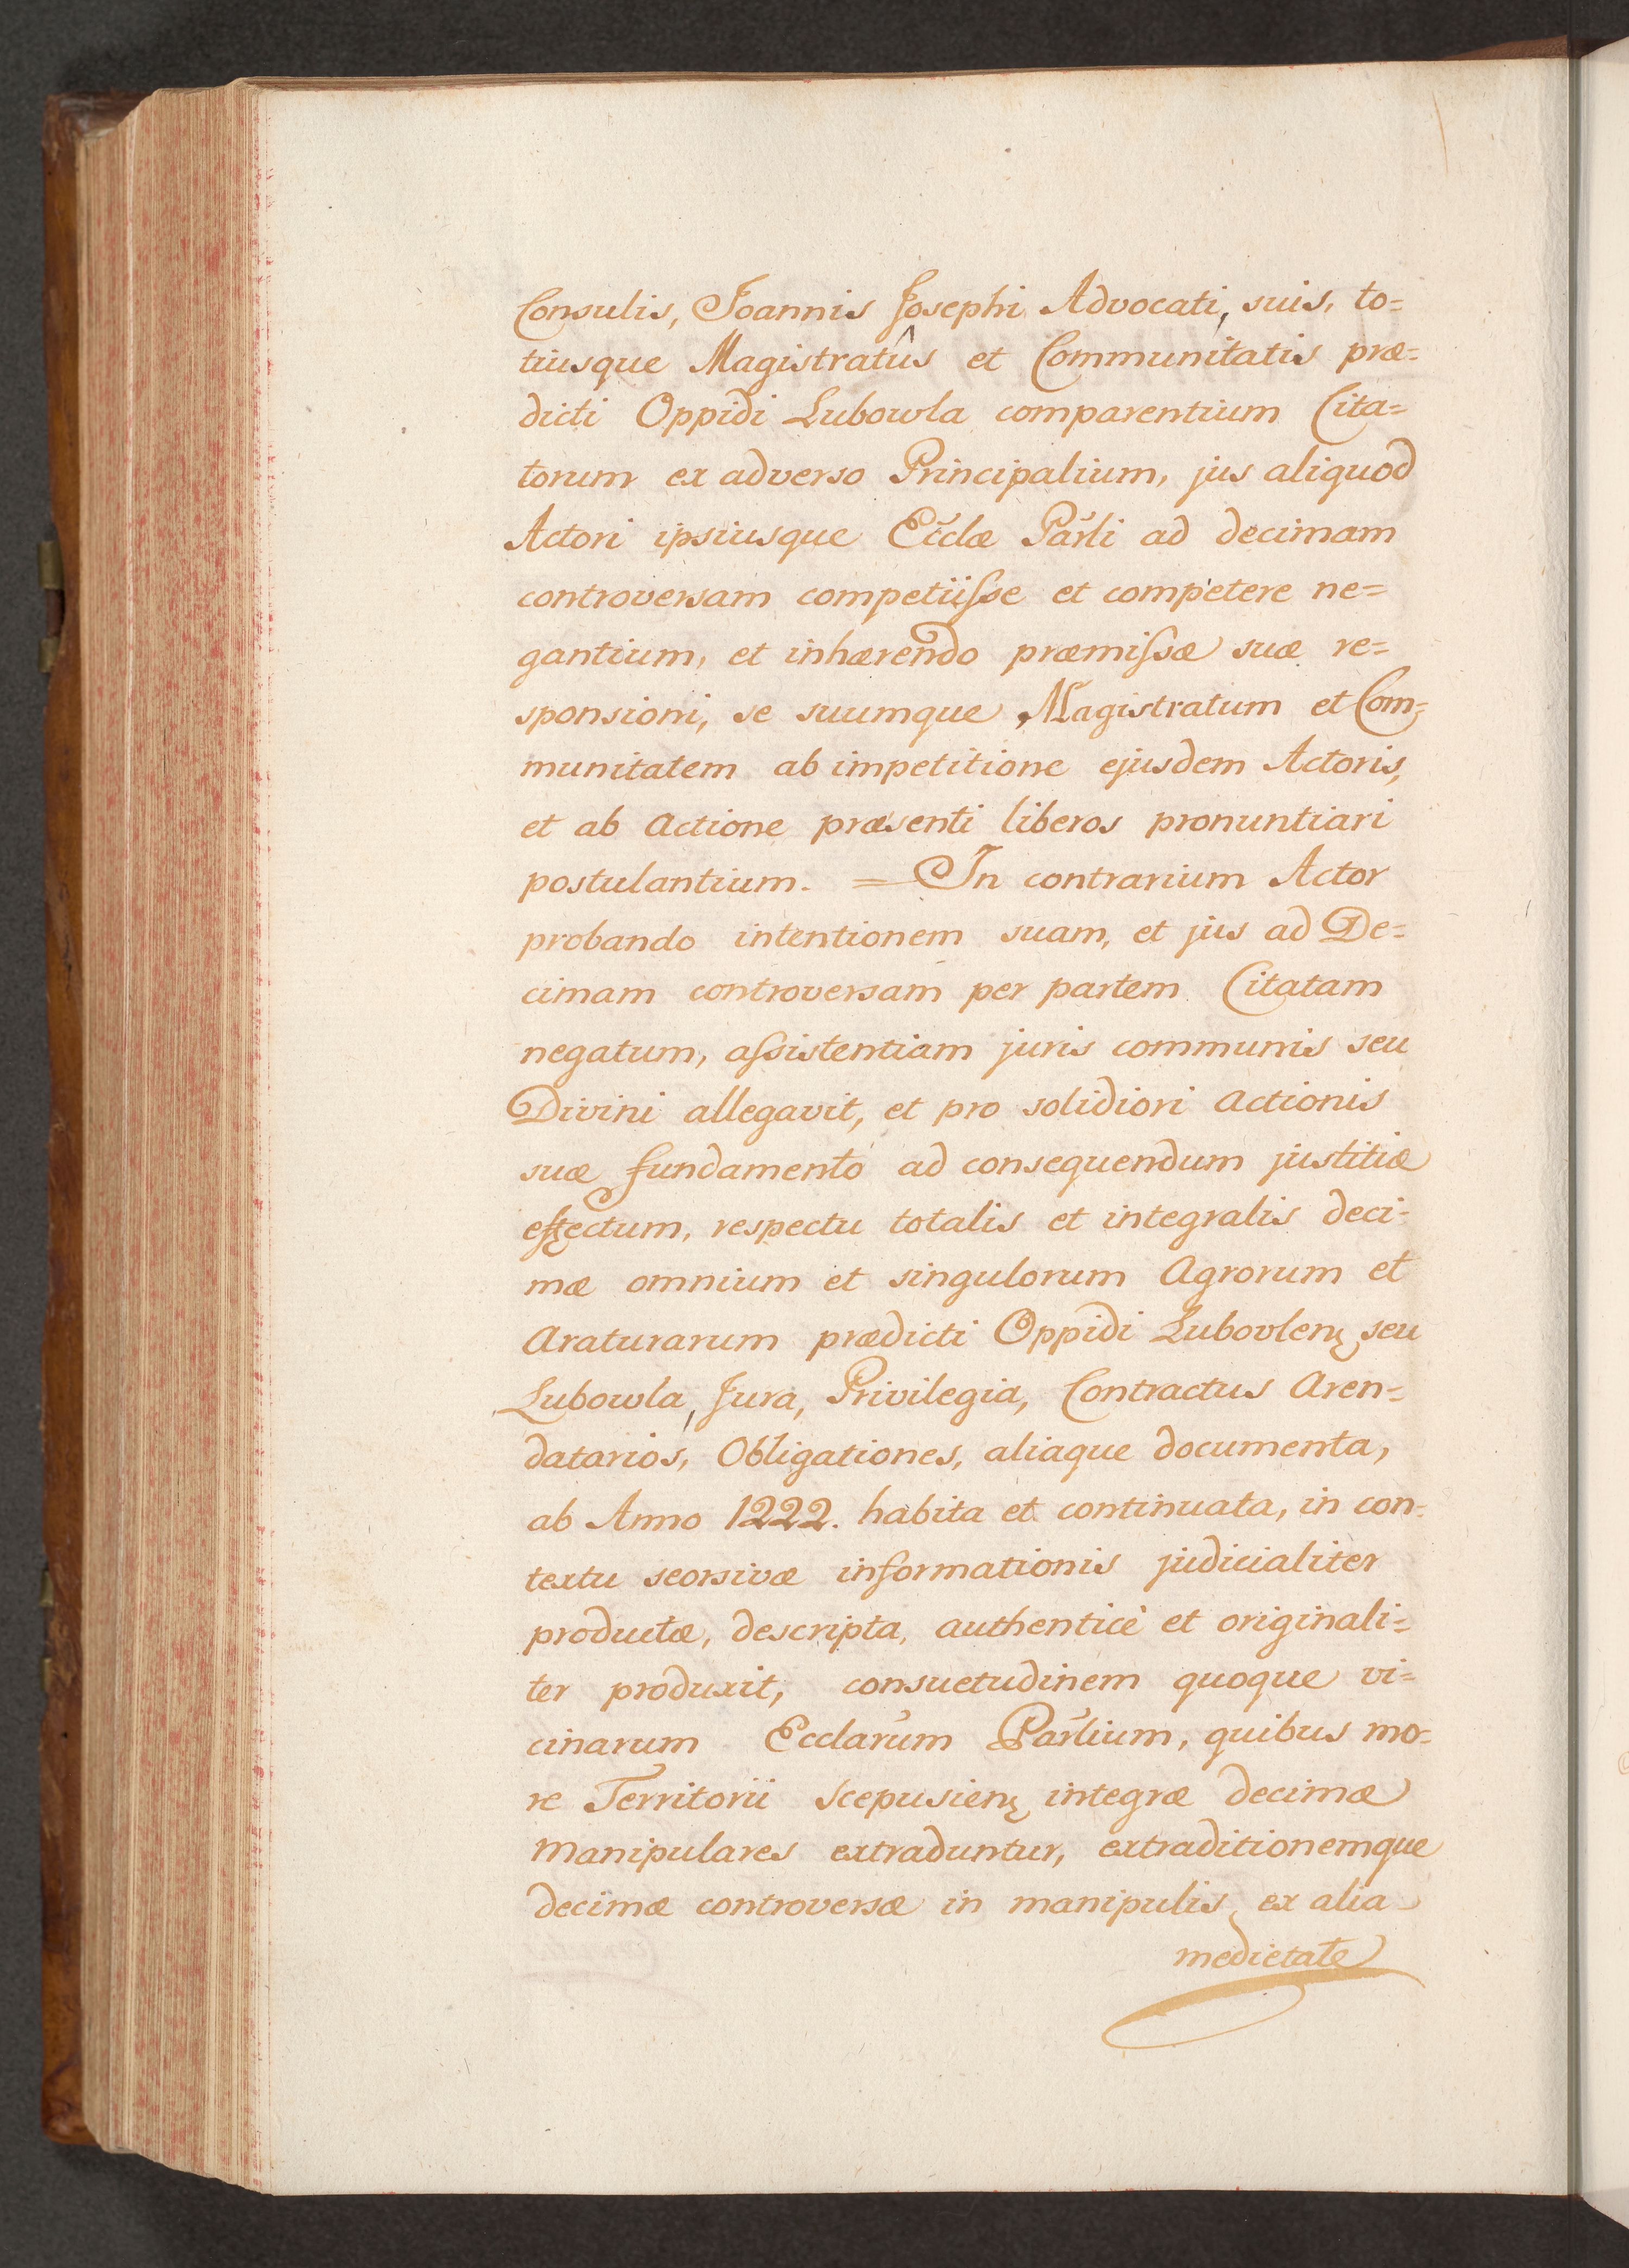 Consulis, Joannis Josephi Advocati, suis, to=
tiusque Magistratûs et Communitatis præ=
dicti Oppidi Lubowla comparentium Cita=
torum ex adverso Principalium, jus aliquod
Actori ipsiusque Eccl̃æ Par̃li ad decimam
controversam competiiſse et competere ne=
gantium, et inhærendo præmiſsæ suæ re=
sponsioni, se suumque Magistratum et Com=
munitatem ab impetitione ejusdem Actoris,
et ab actione præsenti liberos pronuntiari
postulantium. = In contrarium Actor
probando intentionem suam, et jus ad De=
cimam controversam per partem Citatam
negatum, aſsistentiam juris communis seu
Divini allegavit, et pro solidiori actionis
suæ fundamento ad consequendum justitiæ
effectum, respectu totalis et integralis deci=
mæ omnium et singulorum Agrorum et
Araturarum prædicti Oppidi Lubovlenȩ seu
Lubowla, Jura, Privilegia, Contractus Aren=
datarios, Obligationes, aliaque documenta,
ab Anno 1222. habita et continuata, in con=
textu seorsivæ informationis judicialiter
productæ, descripta, authenticè et originali=
ter produxit, consuetudinem quoque vi=
cinarum Ecclar̃um Par̃lium, quibus mo=
re Territorii Scepusienȩ integræ decimæ
Manipulares extraduntur, extraditionemque
decimæ controversæ in manipulis, ex alia
medietate